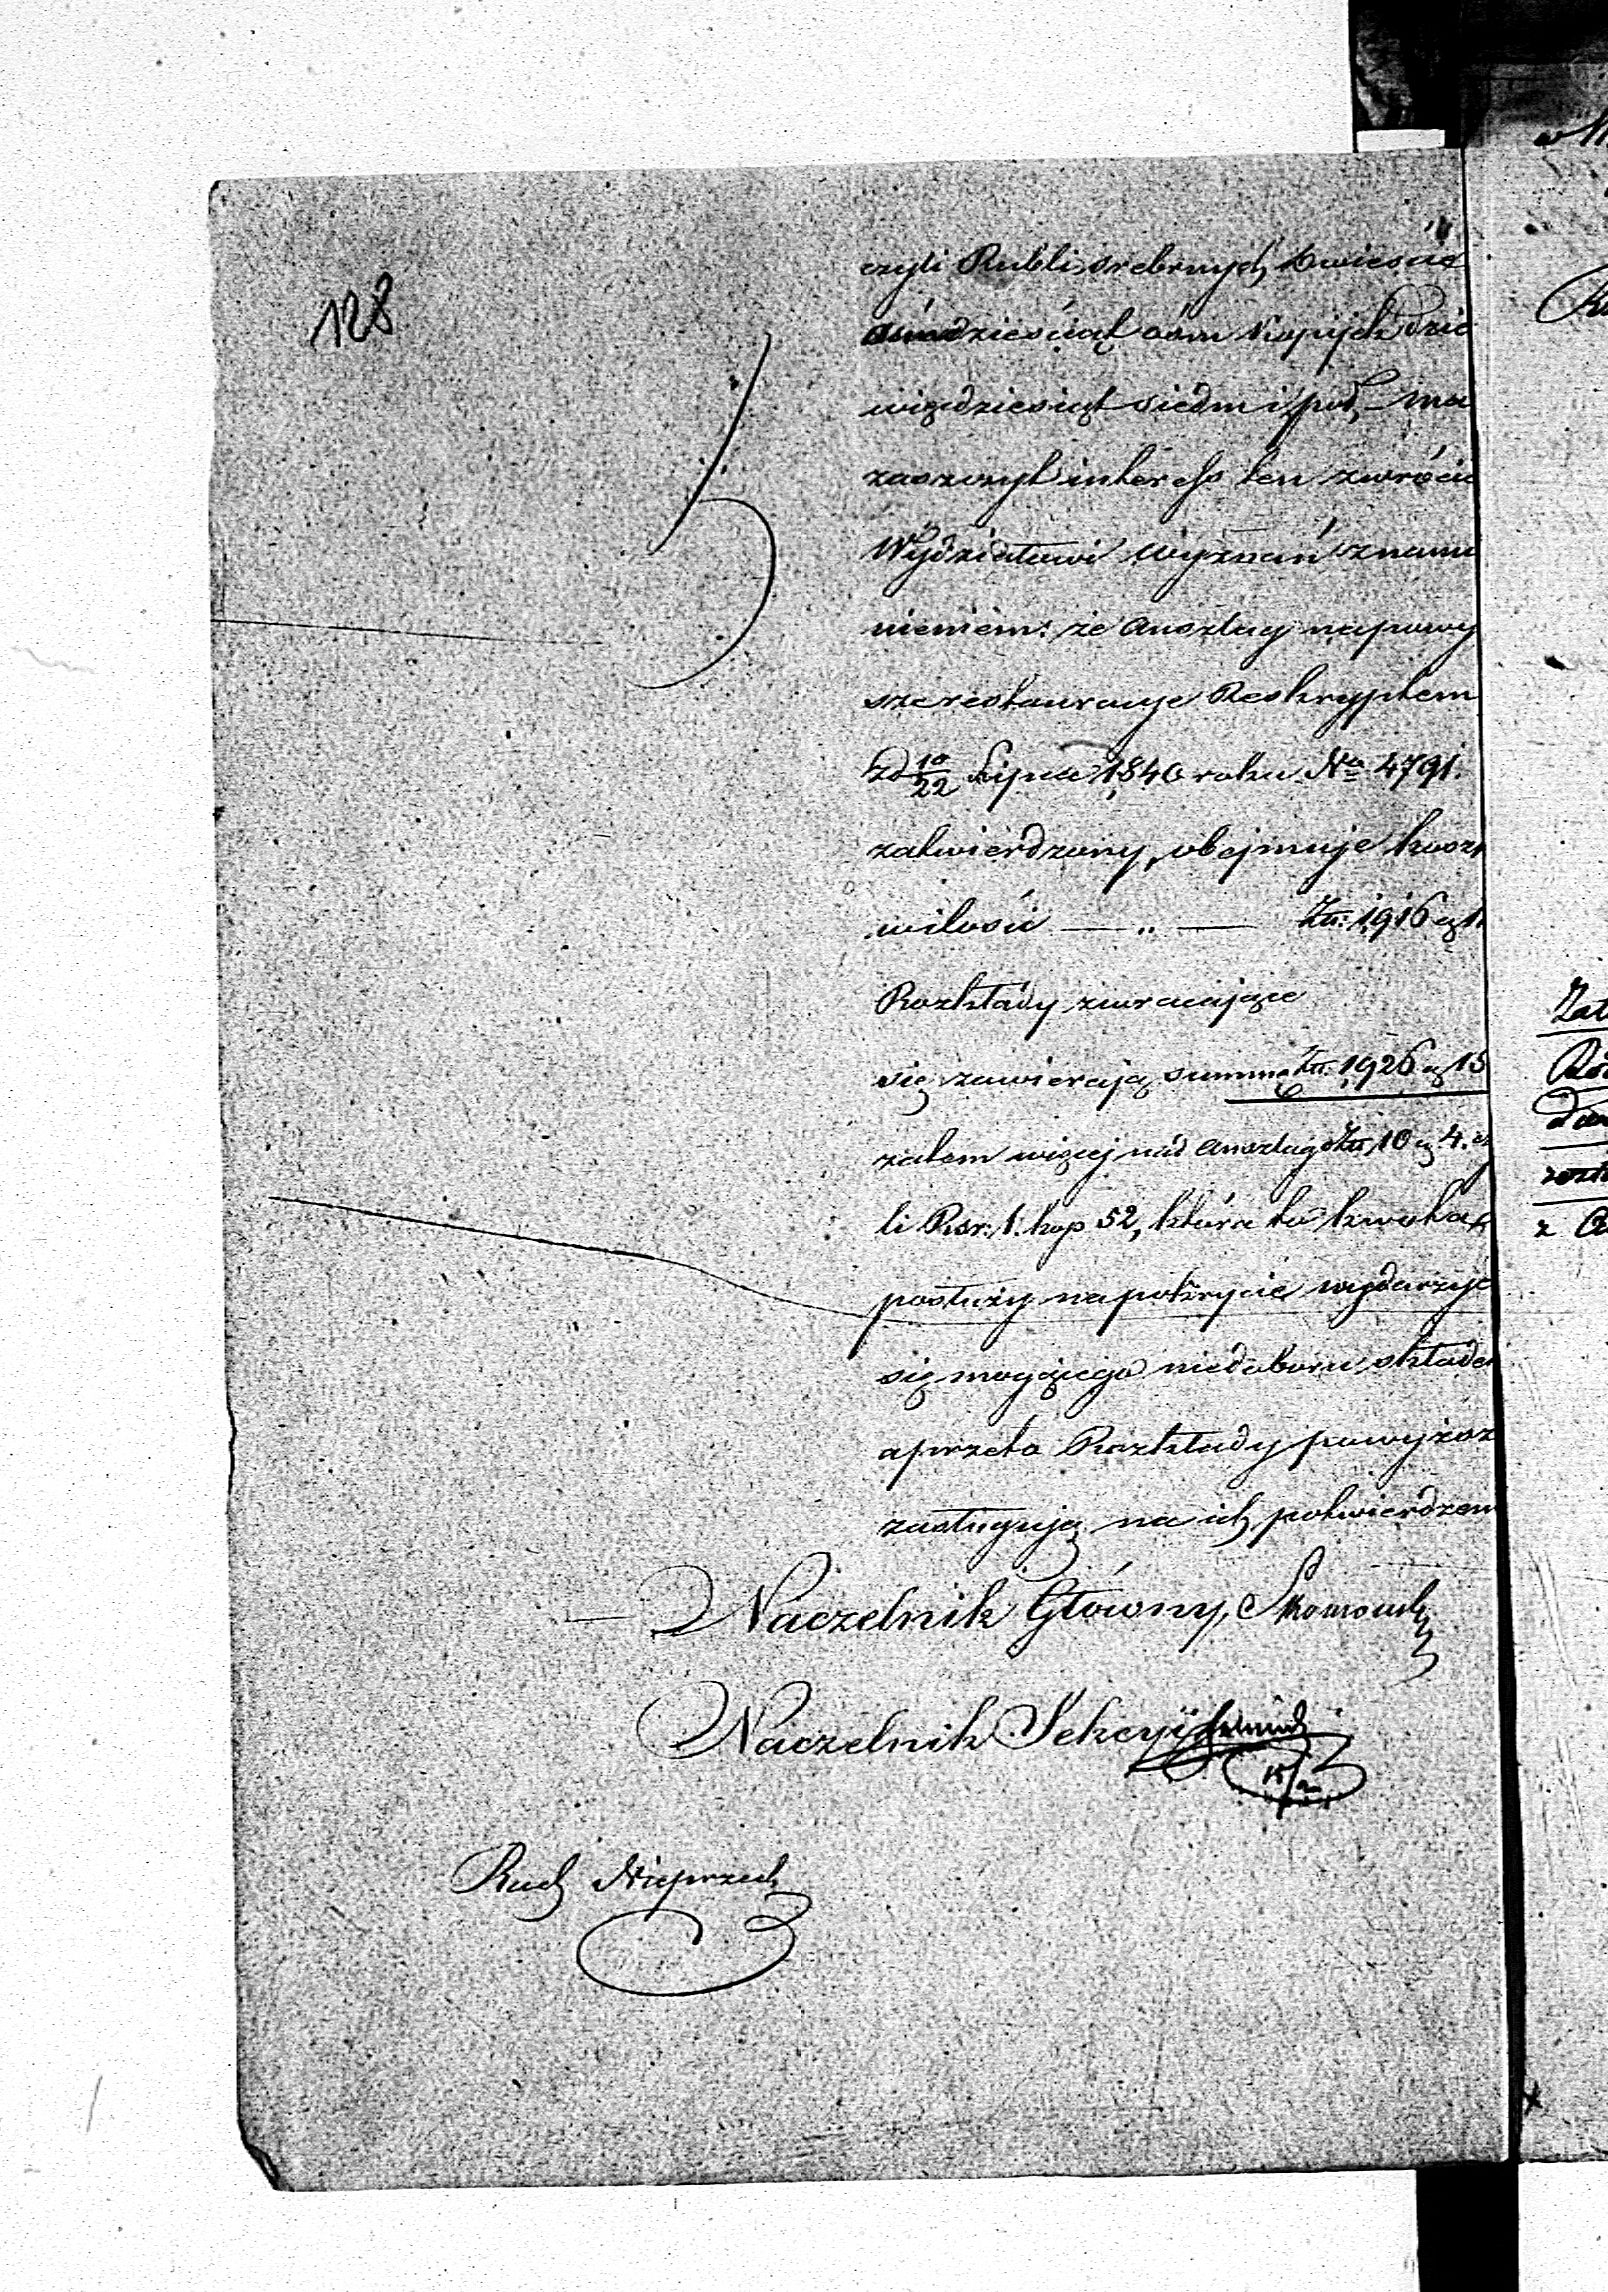 128
czyli Rubli srebrnych dwieście
ośmdziesiąt ośm kopijek dzie
więdziesiąt siedm i pół, ma
zaszczyt interess ten zwrócić
Wydziałowi Wyznań z nam
nieniem: że Anszlag na powy
sze restauracye Reskryptem
Zd 10/22 Lipca 1840 roku No 4791.
zatwierdzony, obejmuje koszt
w ilości — „ — Złt: 1916 g 11
Rozkłady zwracające
się zawierają summę Złt. 1926 g 15
zatem więcej nad Anszlag Złt. 10 g 4. cz
li Rsr. 1. kop 52, która to kwota
posłuży na pokrycie wydarzyć
się mogącego niedoboru składe
a przeto Rozkłady powyższ
zasługują na ich potwierdzen
Naczelnik Główny,
Naczelnik Sekcyi
Rach